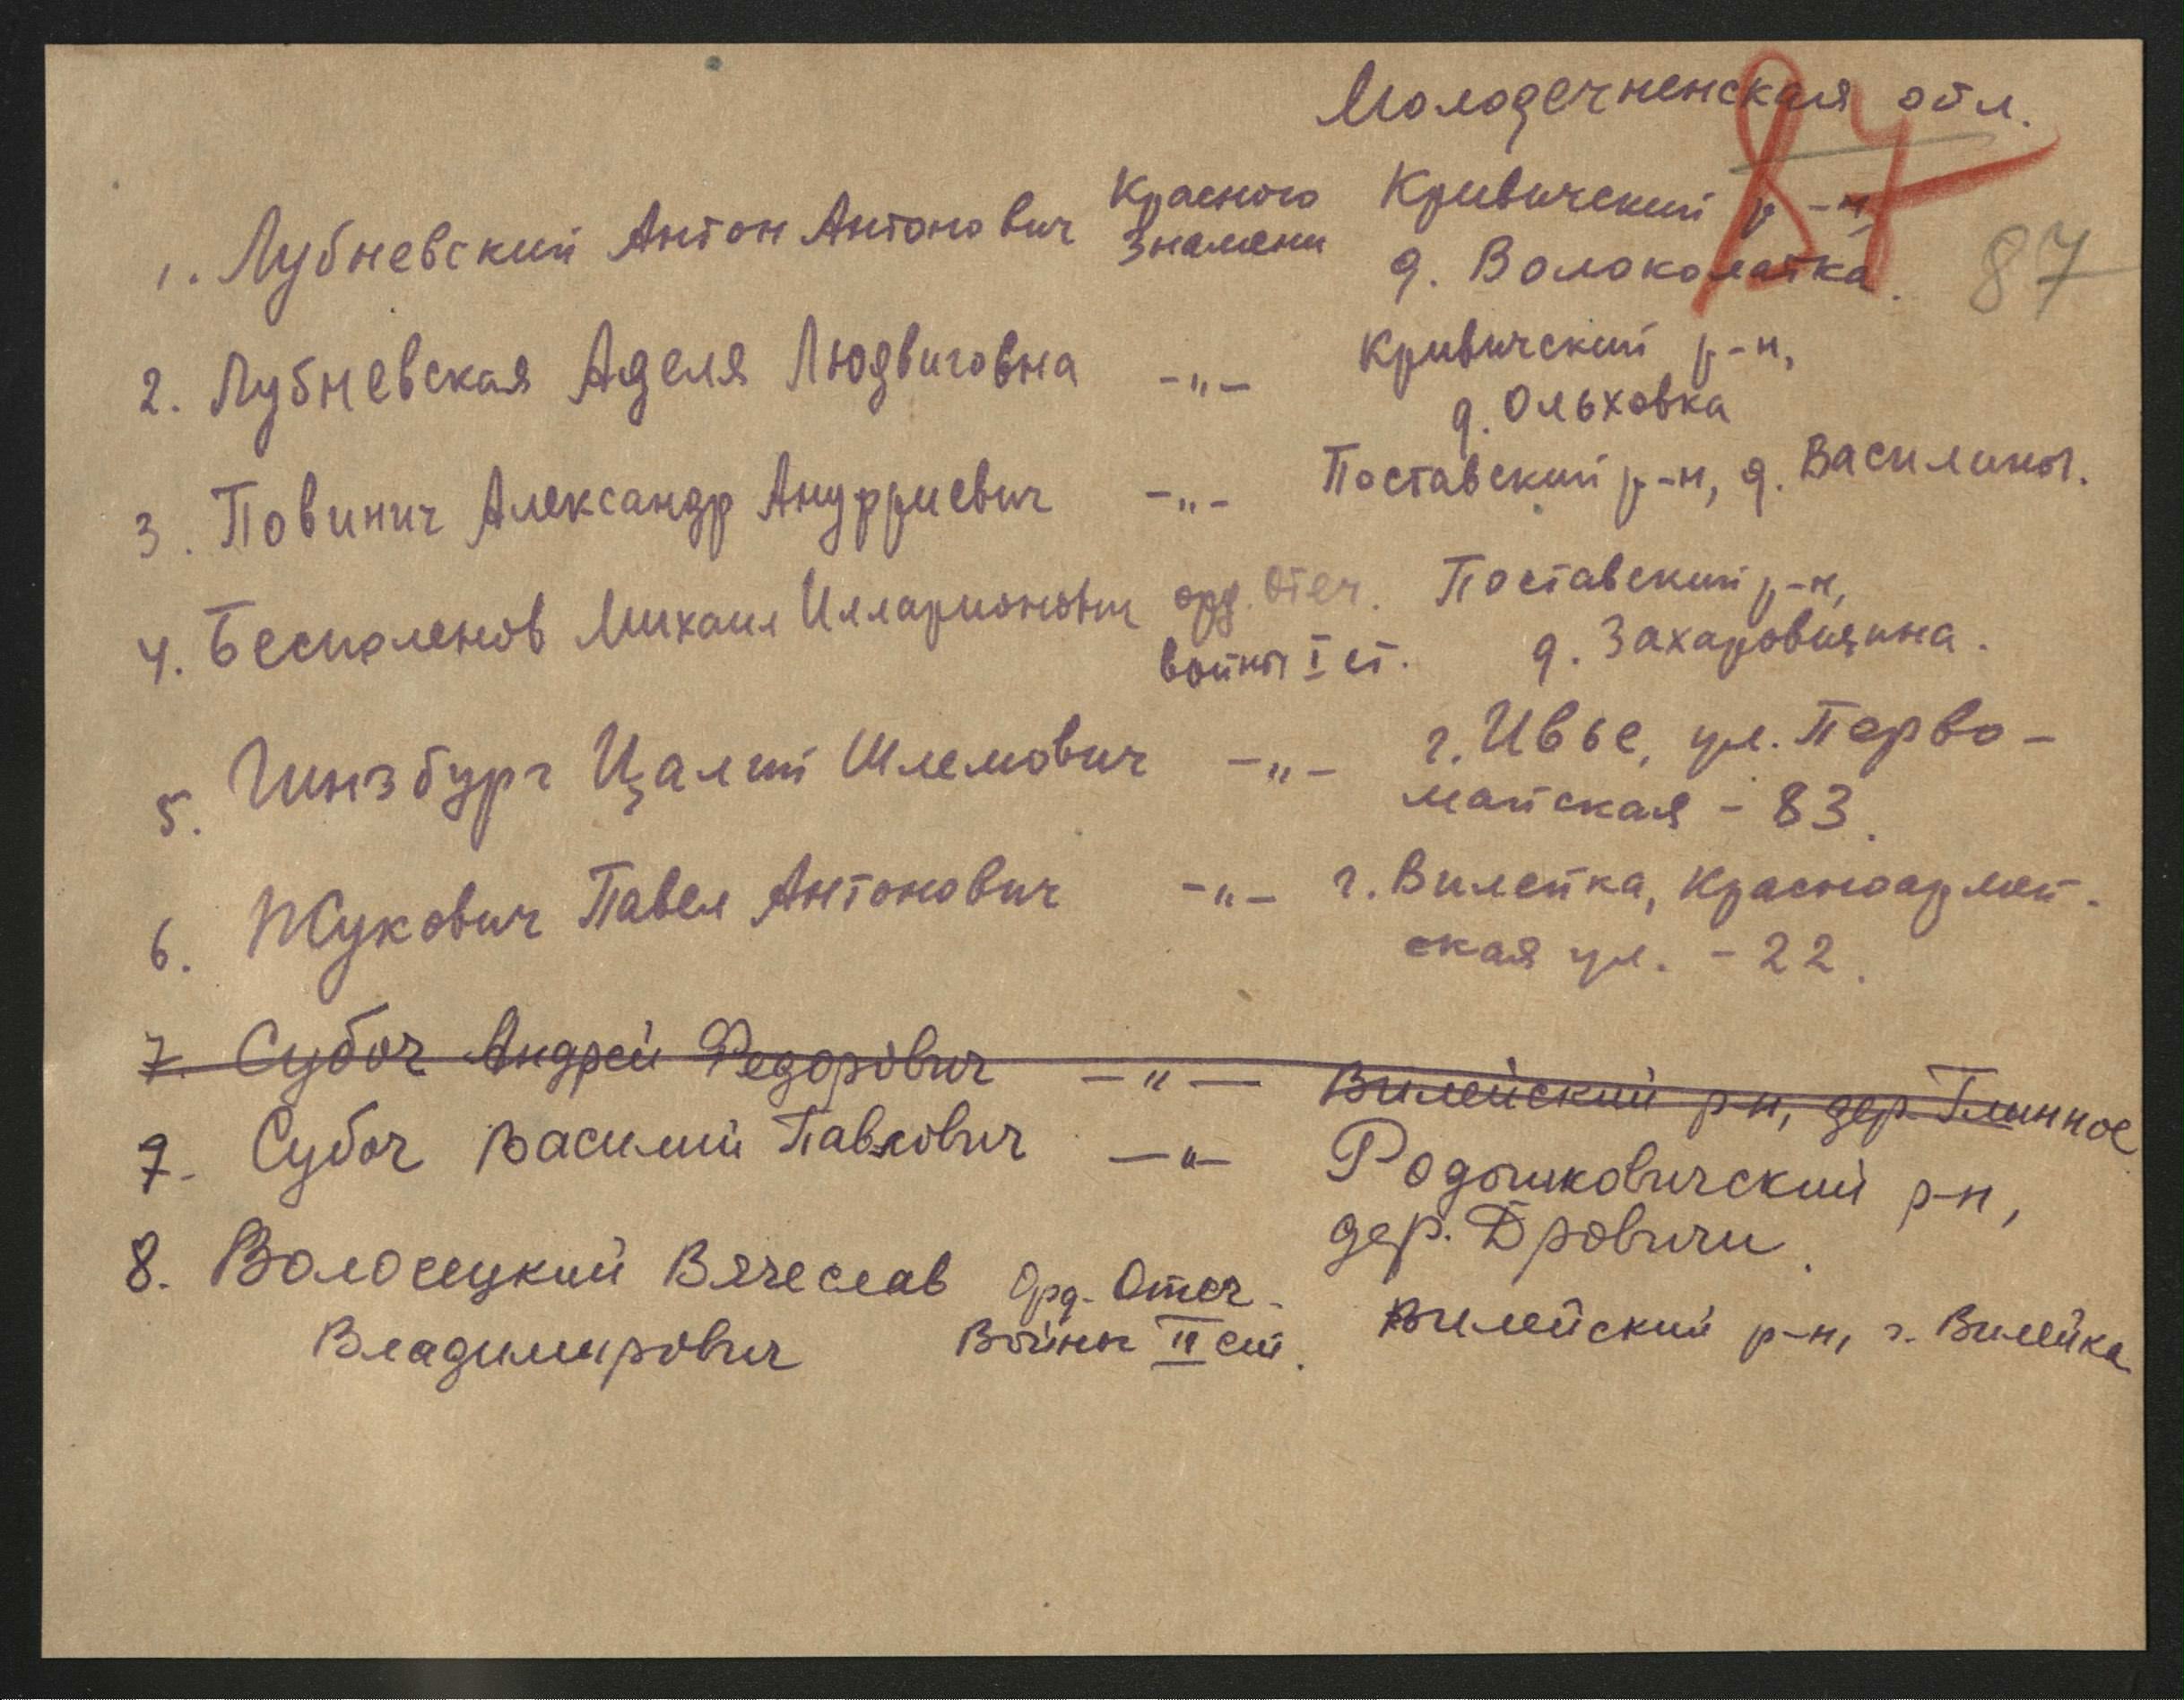 Молодечненская обл.
87
87
1. Лубневский Антон Антонович Красного Знамени Кривичский р-н,
д. Волоколатка.
2. Лубневская Аделя Людвиговна -"- Кривичский р-н,
д. Ольховка
3. Повинич Александр -"- Поставский р-н, д. Василины.
4. Беспаленов Михаил Илларионович орд. Отеч. войны I ст. Поставский р-н,
д. Захаровщина.
5. Гинзбург Шлемович -"- г. Ивье, ул. Перво-
майская - 83.
6. Жукович Павел Антонович -"- г. Вилейка, Красноармей-
ская ул. - 22.
7. Субоч Андрей Федорович -"- Вилейский р-н, дер. Глинное
7. Субоч Василий Павлович -"- Родошковичский р-н,
дер. Дровичи.
8. Волосецкий Вячеслав Орд. Отеч. Вилейский р-н, г. Вилейка
Владимирович Войны II ст.